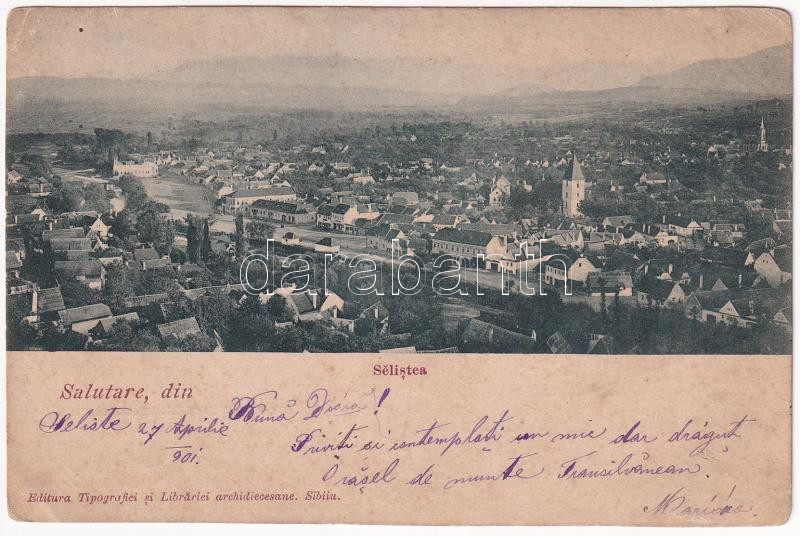 darabanth
Sĕliștea
Salutare, din
Seliste 27 Aprilie
901.
Bună
!
Priviti si contemplați un mic dar drăgut
orășel de munte Transilvănean.
Editura Tipografiei și Librăriei archidiecesane. Sibiiu.